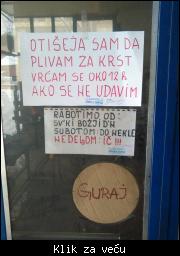 OTIŠEJA SAM DA
PLIVAM ZA KRST
VRĆAM SE OKO 12 h
AKO SE NE UDAVIM
RABOTIMO OD:
SV'KI BOŽJI D'N
SUBOTOM: DO NEKLE
NEDELOM: IČ!!!
GURAJ
Klik za veću